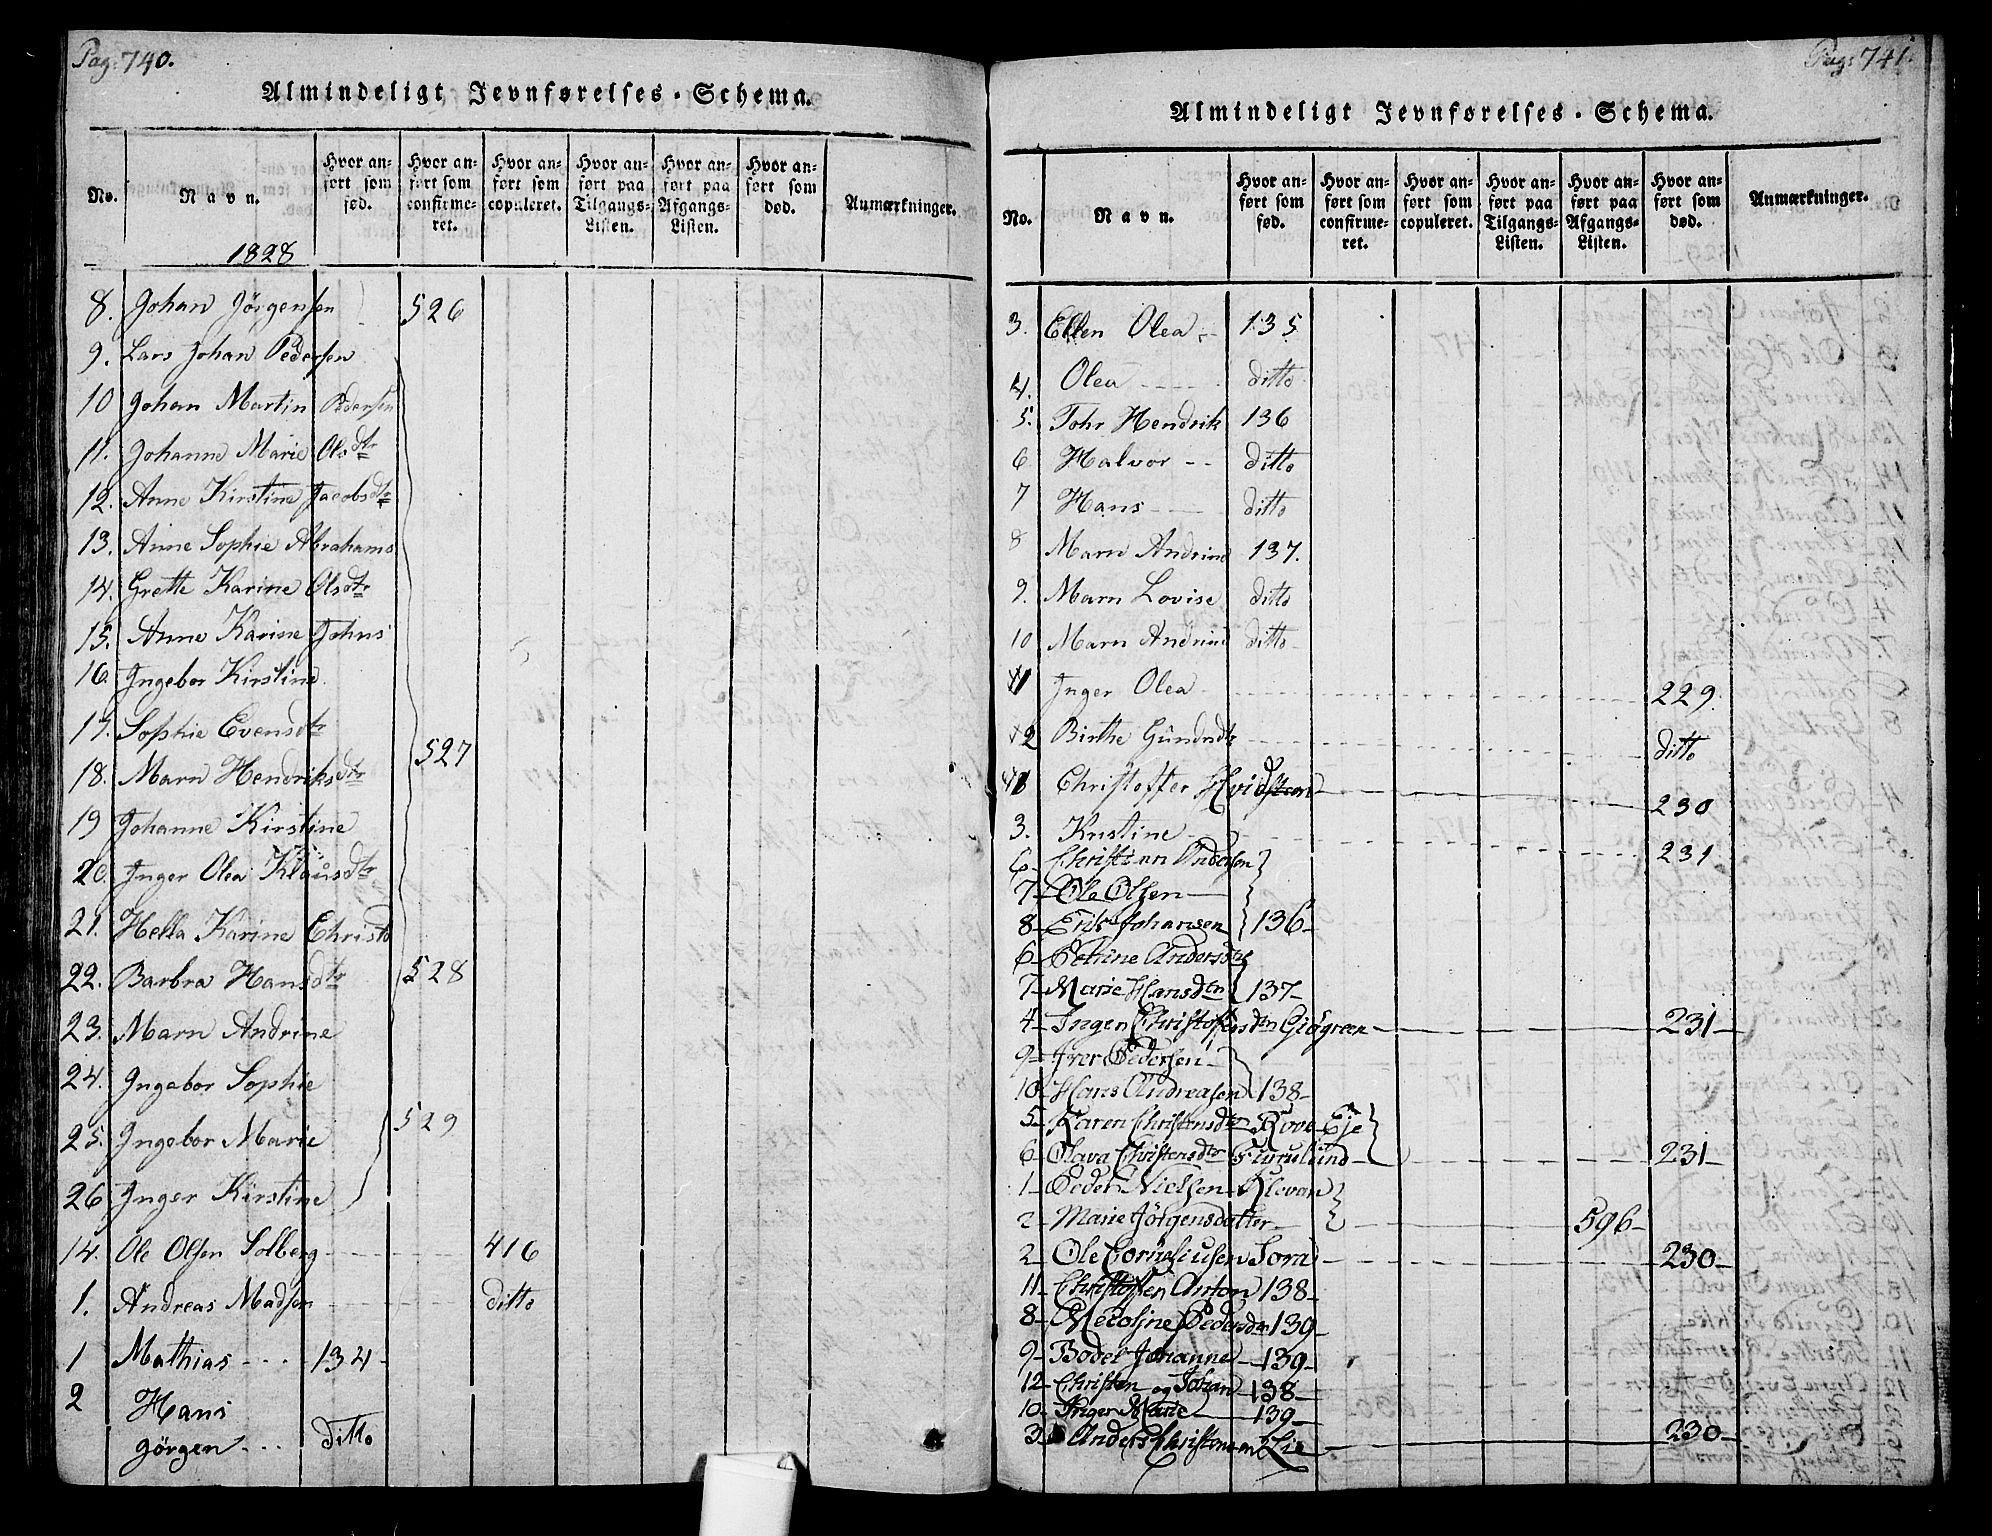 Pag: 740.
Almindeligt Jevnførelses-Schema.
No. Navn. Hvor anført som fød. Hvor anført som confirmeret. Hvor anført som copuleret. Hvor anført paa Tilgangs-Listen. Hvor anført paa Afgangs-Listen. Hvor anført som død. Anmærkninger.
1828
8. Johan Jörgensen 526
9. Lars Johan Pedersen
10 Johan Martin Pedersen
11. Johanne Marie Olsdtr
12. Anne Kirstine Jacobsdtr
13. Anne Sophie Abrahams
14. Grette Karine Olsdtr
15. Anne Karine Johns
16. Ingebor Kirstine
17. Sophie Evensdtr
527
18. Marn Hendriksdtr
19 Johanne Kirstine
20. Inger Olea Klausdtr
21. Hella Karine Christo
22. Barbra Hansdtr 528
23. Marn Andrine
24. Ingebor Sophie
25. Ingebor Marie 529
26 Inger Kirstine
14. Ole Olsen Solberg 416
1. Andreas Madsen ditto
1 Mathias 134
2 Hans
Jörgen ditto
Pag: 741.
Almindeligt Jevnførelses-Schema.
No. Navn. Hvor anført som fød. Hvor anført som confirmeret. Hvor anført som copuleret. Hvor anført paa Tilgangs-Listen. Hvor anført paa Afgangs-Listen. Hvor anført som død. Anmærkninger.
3. Ellen Olea 135
4. Olea ditto
5. Tohr Hendrik 136
6 Halvor ditto
7 Hans ditto
8 Marn Andrine 137.
9. Marn Lovise ditto
10 Marn Andrine ditto
1 Inger Olea 229.
2 Birthe Gundrdtr ditto
1 Christoffer 230
3. Kristine 231
6 Christian Andersen
7 Ole Olsen
8 Erik Johansen 136
6 Petrine Andersdtr
7 Marie Hansdtr 137
4 Inger 231
9 Iver Pedersen
10 Hans Andreasen 138
5 Karen Christensdtr Rove Eje
6 Olava Christensdtr Furulund 231
1 Peder Nielsen Klevan
2 Marie Jörgensdatter 596
2 Ole Corneliusen 230
11 Christoffen Anton 138
8 Pedersdtr 139
9 Bodel Johanne 139
12 Christen og Johan 138
10 Inger Marie 139
3 Anders Christensen Lie 230